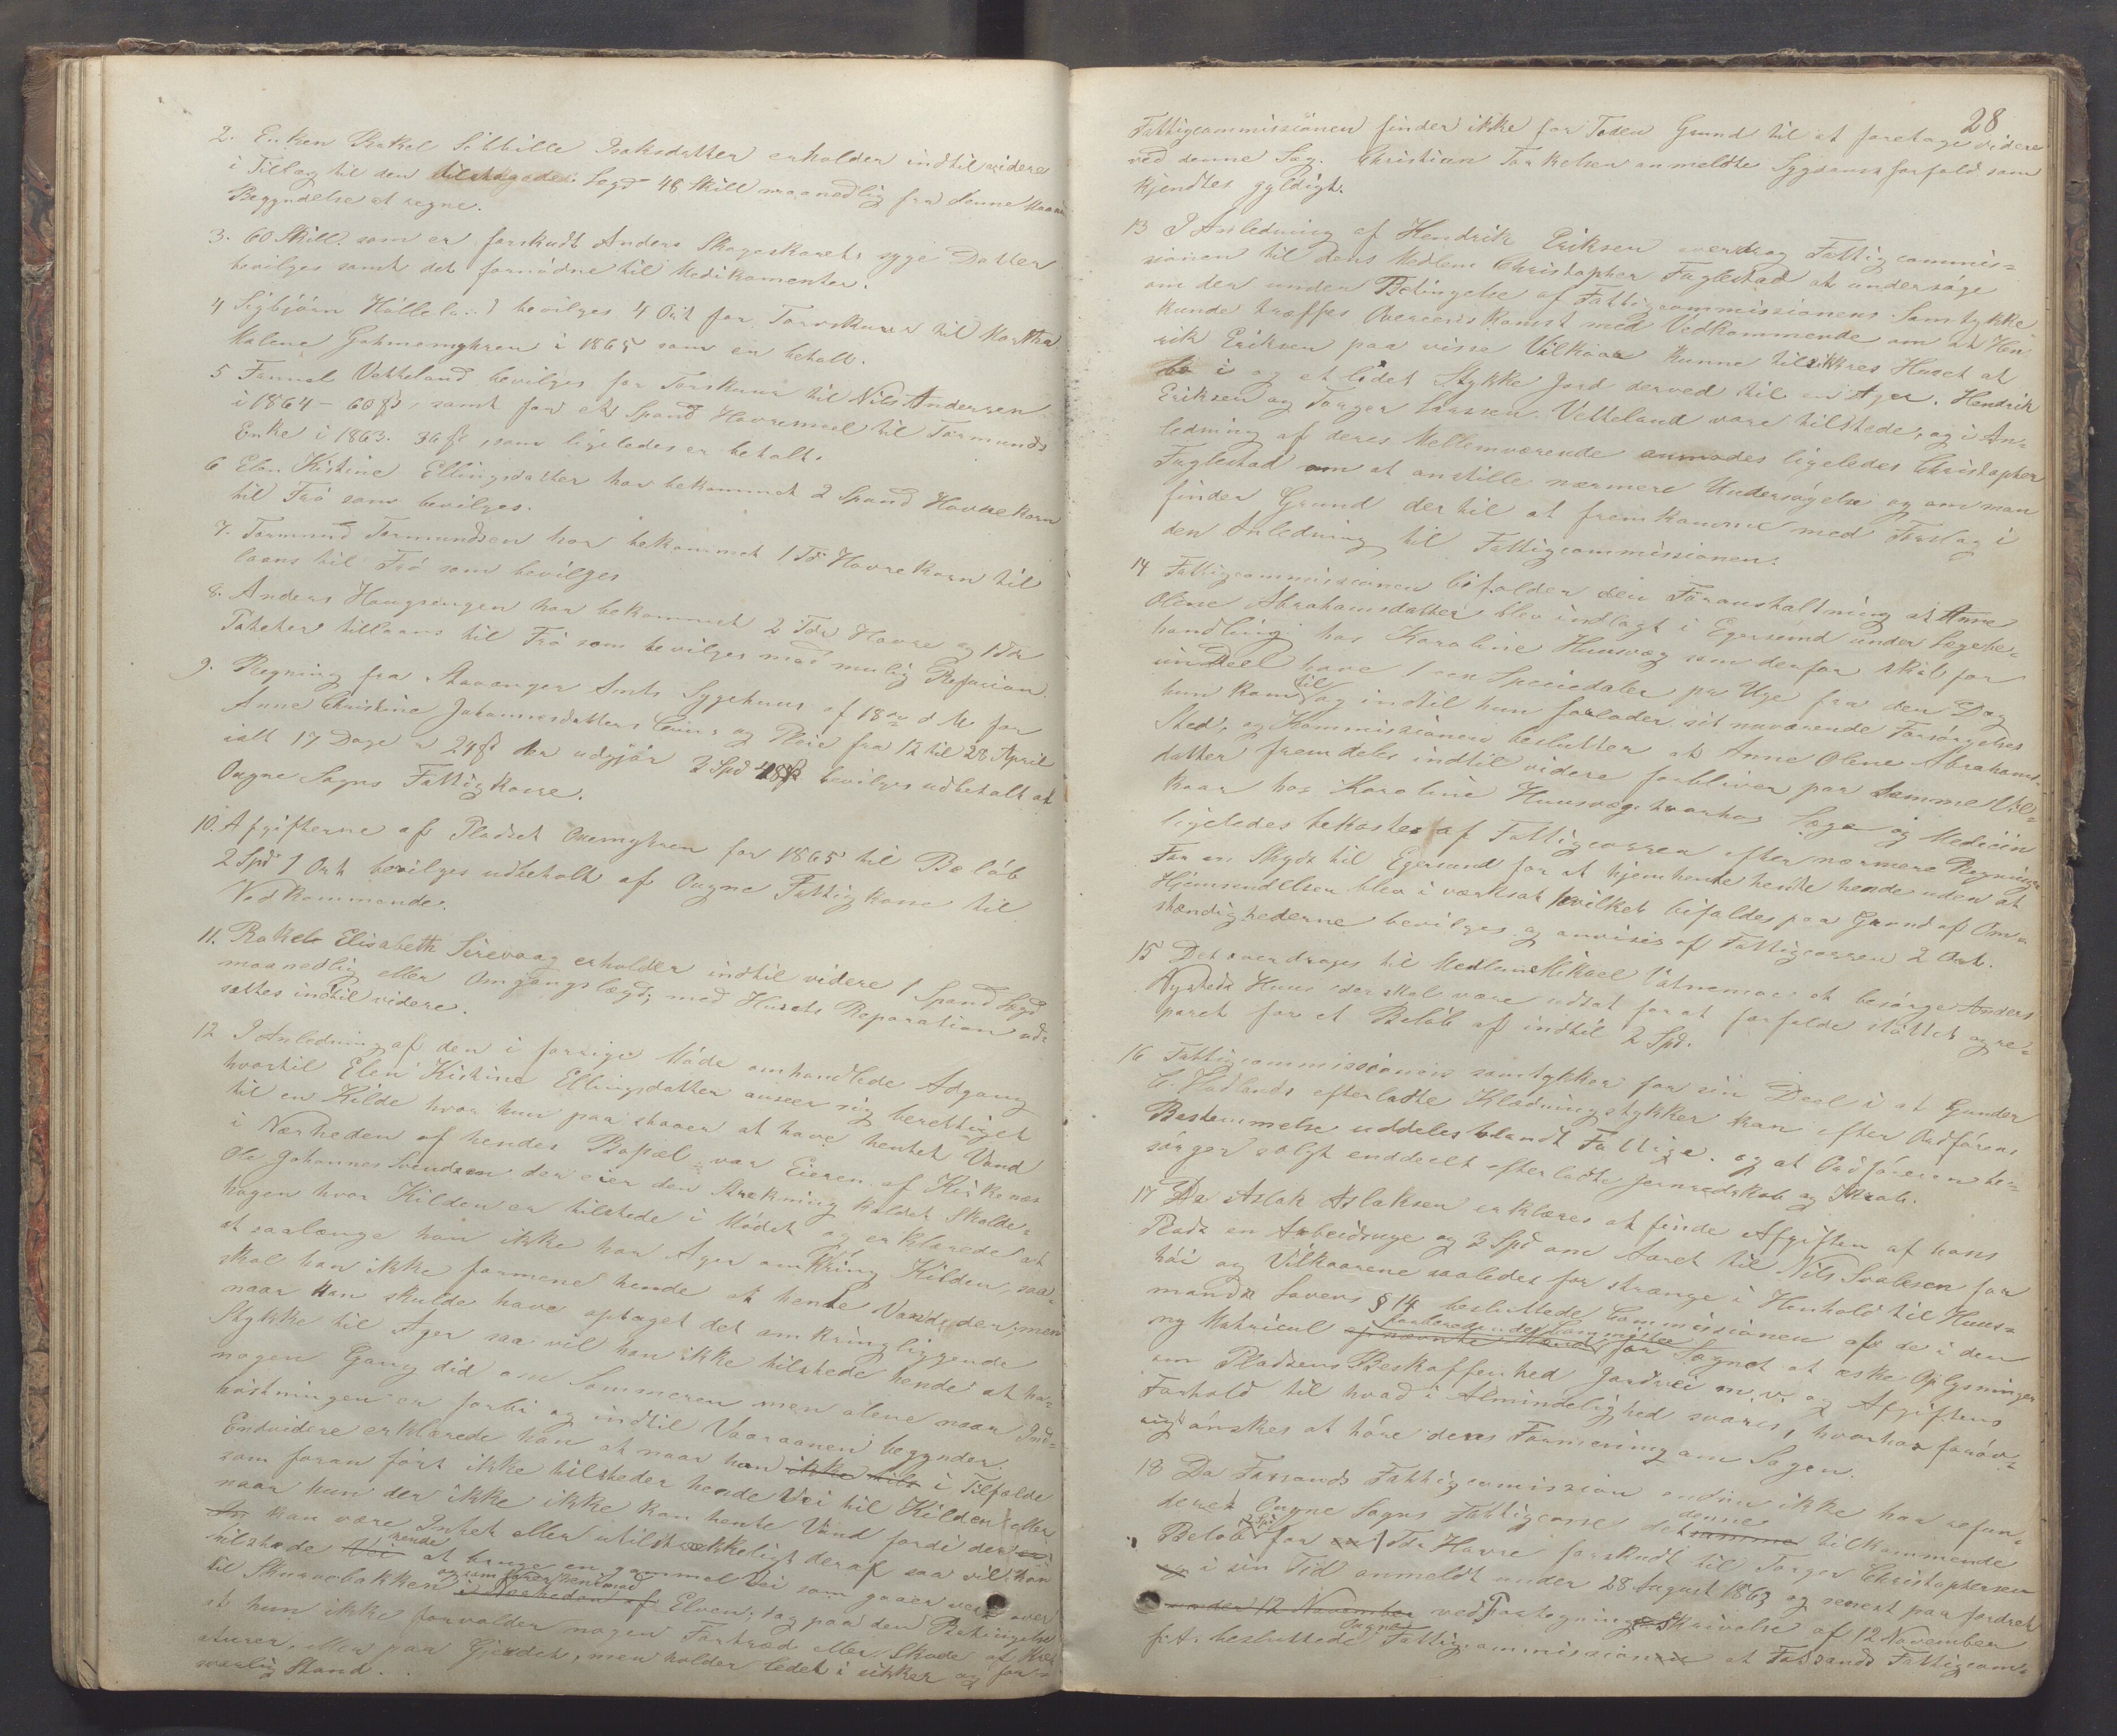 2. Enken Rakel Sibbille Isaksdatter erholder indtil videre
i Tillæg til den tilstaaede Lægd 48 Skill maanedlig fra denne Maaneds
Begyndelse at regne.
3. 60 Skill. som er forskudt Anders Skogeskarets syge Datter
bevilges samt det fornødne til Medikamenter.
4 Sigbjørn bevilges 4 Ort for Torvskuur til Martha
Malene Gahmemyhren i 1865 som er betalt.
5 Vetteland bevilges for Torskuur til Nils Andersen
i 1864 - 60 ß, samt for et Spand Havremeel til Tormunds
Enke i 1863. 36 ß, som ligeledes er betalt.
6 Elen Kistine Ellingsdatter har bekommet 2 Spand Havrekorn
til Frö som bevilges.
7. Tormund Tormundsen har bekommet 1 Td Havrekorn til
laans til Frö som bevilges
8. Anders Haugsengen har bekommet 2 Tdr Havre og 1 Tdr
Poteter tillaans til Frö som bevilges mod mulig Refusion.
9. Regning fra Stavanger Amts Sygehuus af 18de d. M. for
Anne Christine Johannesdatters Cuur og Pleie fra 12 til 28 April
ialt 17 Dage a 24 ß der udgjør 3 Spd 48 ß bevilges udbetalt af
Ougne Sogns Fattigkasse.
10. Afgifterne af Pladset Oremyhren for 1865 til Beløb
2 Spd 1 Ort bevilges udbetalt af Ougne Fattigkasse til
Vedkommende.
11. Rakel Elisabeth Sirevaag erholder indtil videre 1 Spand Lægd
maanedlig eller Omgangslægd; med Husets Reparation ud-
sættes indtil videre.
12 I Anledning af den i forrige Møde omhandlede Adgang
hvortil Elen Kistine Ellingsdatter anseer sig berettiget
til en Kilde hvor hun paa staaer at have hentet Vand
i Nærheden af hendes Bopæl, var Eieren af Kirkenes
Ole Johannes Svendsen der eier den Strækning kaldet Skolde-
hagen hvor Kilden er tilstede i Mödet og erklærede at
at saalænge han ikke har Ager omkring Kilden, saa
skal han ikke formene hende at hente Vand der; men
naar han skulde have optaget det omkringliggende
Stykke til Ager saa vil han ikke tilstede hende at ha-
nogen Gang did om Sommeren men alene naar Ind-
høstningen er forbi og indtil Vaaraanen begynder.
Endvidere erklærede han at naar han ikke vilde i Tilfælde
som foran ført ikke tilsteder hende Vei til Kilden eller
naar hun der ikke ikke kan hente Vand fordi der er
kan være Intet eller utilstrækkeligt deraf saa vil han
tilstede Vei hende at bruge en gammel Vei som gaaer vest over
til Skurvebakken og som fører hen mod i Nærheden af Elven; dog paa den Betingelse
at hun ikke forvolder nogen Fortræd eller Skade af Krea-
turer, eller paa Gjerdet, men holder ledet i sikker og for-
svarlig Stand.
28
Fattigcommissionen finder ikke for Tiden Grund til at foretage videre
ved denne Sag. Christian Torkelsen anmeldte Sygdomsforfald som
kjendtes gyldigt.
13 I Anledning af Hendrik Eriksen overdrog Fattigcommis-
sionen til dens Medlem Christopher Fuglestad at undersøge
om der under Betingelse af Fattigcommissionens Samtykke
kunde træffes Overeenskomst med Vedkommende om at Hen
rik Eriksen paa visse Vilkaar kunne tilsikkres Huset at
bo i og et lidet Stykke Jord derved til en Ager. Hendrik
Eriksen og Torger Larssen Vetteland vare tilstede, og i An-
ledning af deres Mellemværende anmodes ligeledes Christopher
Fuglestad om at anstille nærmere Undersøgelse og om man
finder Grund dertil at fremkomme med Forslag i
den Anledning til Fattigcommissionen.
14 Fattigcommissionen bifalder den Foranstaltning at Anne
Olene Abrahamsdatter blev indlagt i Egersund under Lægebe-
handling hos Karoline Huusvæg som derfor skal for
sin Deel have 1 een Speciedaler pr Uge fra den Dag
hun kom til og indtil hun forlader sit nuværende Forsørgelses
Sted, og Kommissionen beslutter at Anne Olene Abrahams-
datter fremdeles indtil videre forbliver paa samme Vil-
kaar hos Karoline Huusvæg; hvorhos Læge og Medicin
ligeledes bekostes af Fattigcassen efter nærmere Regning.
For en Skyds til Egersund for at hjemhente hende uden at
Hjemsendelsen blev i værksat hvilket bifaldes paa Grund af Om-
stændighederne bevilges og anvises af Fattigcassen 2 Ort.
15 Det overdrages til Medlem Mikael Vatnemoe at besørge Anders
Nysteds Huus der skal være udsat for at forfalde støttet og re-
pareret for et Beløb af indtil 2 Spd.
16 Fattigcommissionen samtykker for sin Deel i at Gunder
C. Hadlands efterladte Klædningstykker kan efter Ordførens
Bestemmelse uddeles blandt Fattige. og at Ordføreren be-
sørger solgt enddeelt efterladte Jernredskab og Skrab.
17 Da Aslak Aslaksen erklæres at finde Afgiften af hans
Plads en Arbeidsuge og 3 Spd om Aaret til Nils Svalesen for
höi og Vilkaarene saaledes for strænge i Henhold til Huus-
mands Lovens § 14 besluttede Commissionen af de i den
ny Matricul forberedende Committee opnævnte Mænd for Sognet at æske Oplysninger
om Pladsens Beskaffenhed Jordvei m. v. og Afgiftens
Forhold til hvad i Almindelighed svares, hvorhos forøv-
rigt ønskes at høre deres Formening om Sagen.
18 Da Fossands Fattigcommission endnu ikke har refun-
deret Ougne Sogns Fattigcasse det samme denne tilkommende
Beløb 2 Spd for en 1 Tdr Havre forskudt til Torger Christophersen
og i sin Tid anmeldt under 28 August 1863 og senest paa fordret
under 12 November ved Paategning Skrivelse af 12 November
f: A: besluttede Ougne Fattigcommissionen at Fossands Fattigcom-